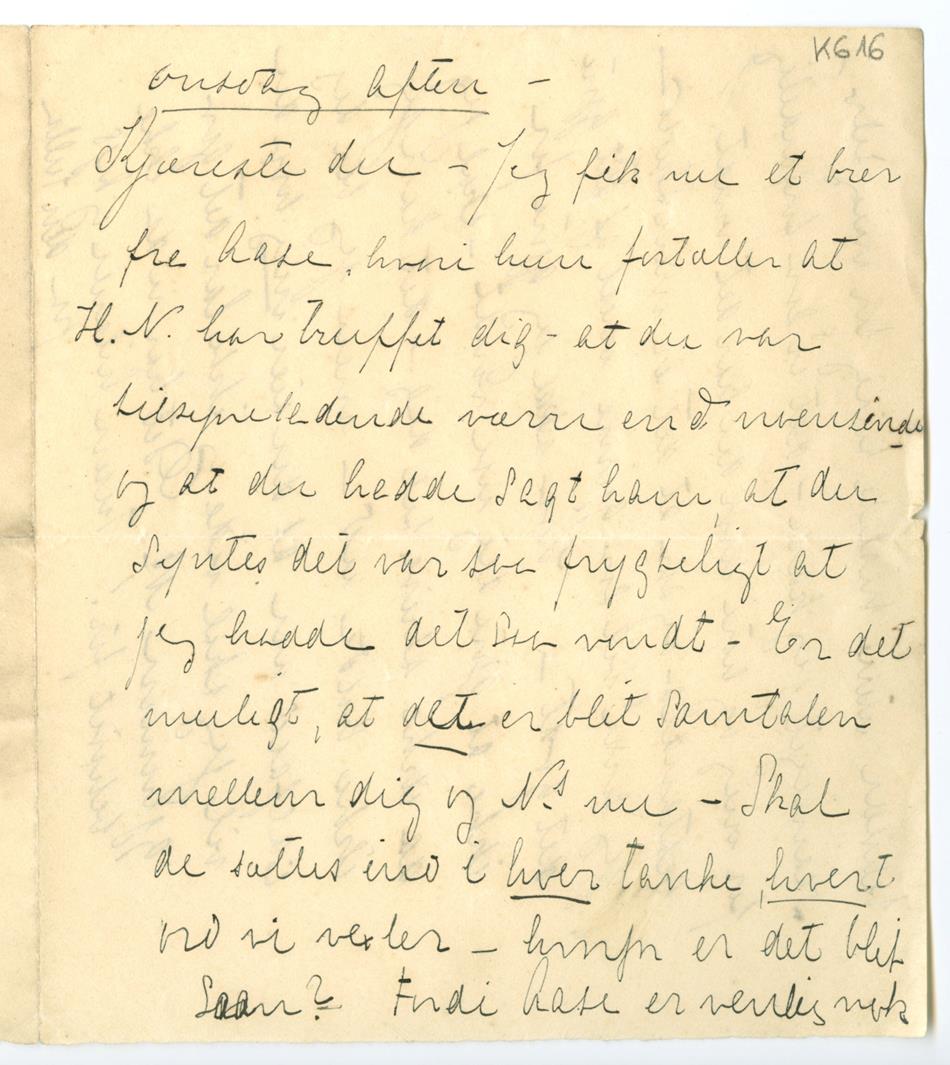 K616
onsdag aften –
Kjæreste du – Jeg fik nu et brev
fra Aase, hvori hun fortæller at
H. N. har truffet dig – at du var
tilsyneladende værre end noensinde
og at du hadde sagt ham, at du
syntes det var saa frygteligt at
jeg hadde det saa vondt – Er det
muligt, at det er blit samtalen
mellem dig og N.s nu – Skal
de sættes ind i hver tanke, hvert
ord vi vexler – hvorfor er det blit
saan? Fordi Aase er venlig nok